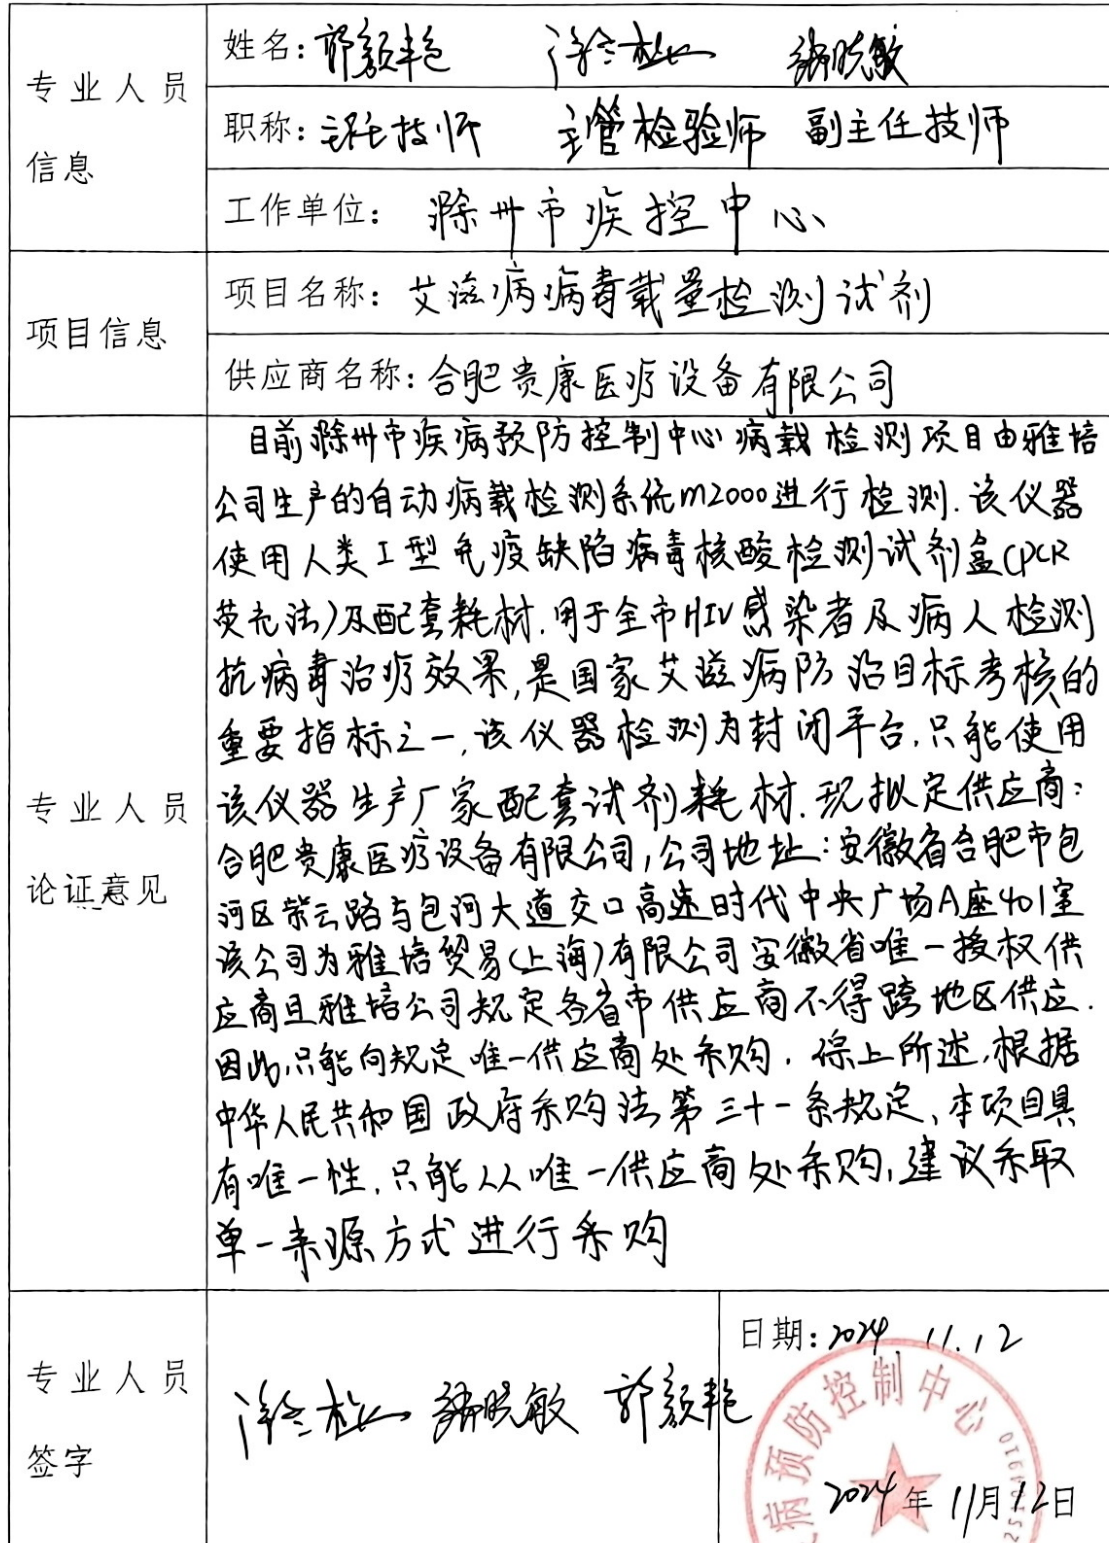 专业人员
信息
姓名：郭颜艳
职称：主任技师 主管检验师 副主任技师
工作单位：滁州市疾控中心
项目信息
项目名称：艾滋病病毒载量检测试剂
供应商名称：合肥贵康医疗设备有限公司
专业人员
论证意见
目前滁州市疾病预防控制中心病载检测项目由雅培
公司生产的自动病载检测系统m2000进行检测.该仪器
使用人类I型免疫缺陷病毒核酸检测试剂盒(PCR
荧光法)及配套耗材.用于全市HIV感染者及病人检测
抗病毒治疗效果,是国家艾滋病防治目标考核的
重要指标之一,该仪器检测为封闭平台.只能使用
该仪器生产厂家配套试剂耗材.现拟定供应商:
合肥贵康医疗设备有限公司,公司地址:安徽省合肥市包
河区紫云路与包河大道交口高速时代中央广场A座401室
该公司为雅培贸易(上海)有限公司安徽省唯一授权供
应商且雅培公司规定各省市供应商不得跨地区供应.
因此,只能向规定唯一供应商处采购.综上所述,根据
中华人民共和国政府采购法第三十一条规定,本项目具
有唯一性,只能从唯一供应商处采购,建议采取
单一来源方式进行采购
专业人员
签字
郭颜艳
日期:2024 11.12
病预防控制中心
2024年11月12日